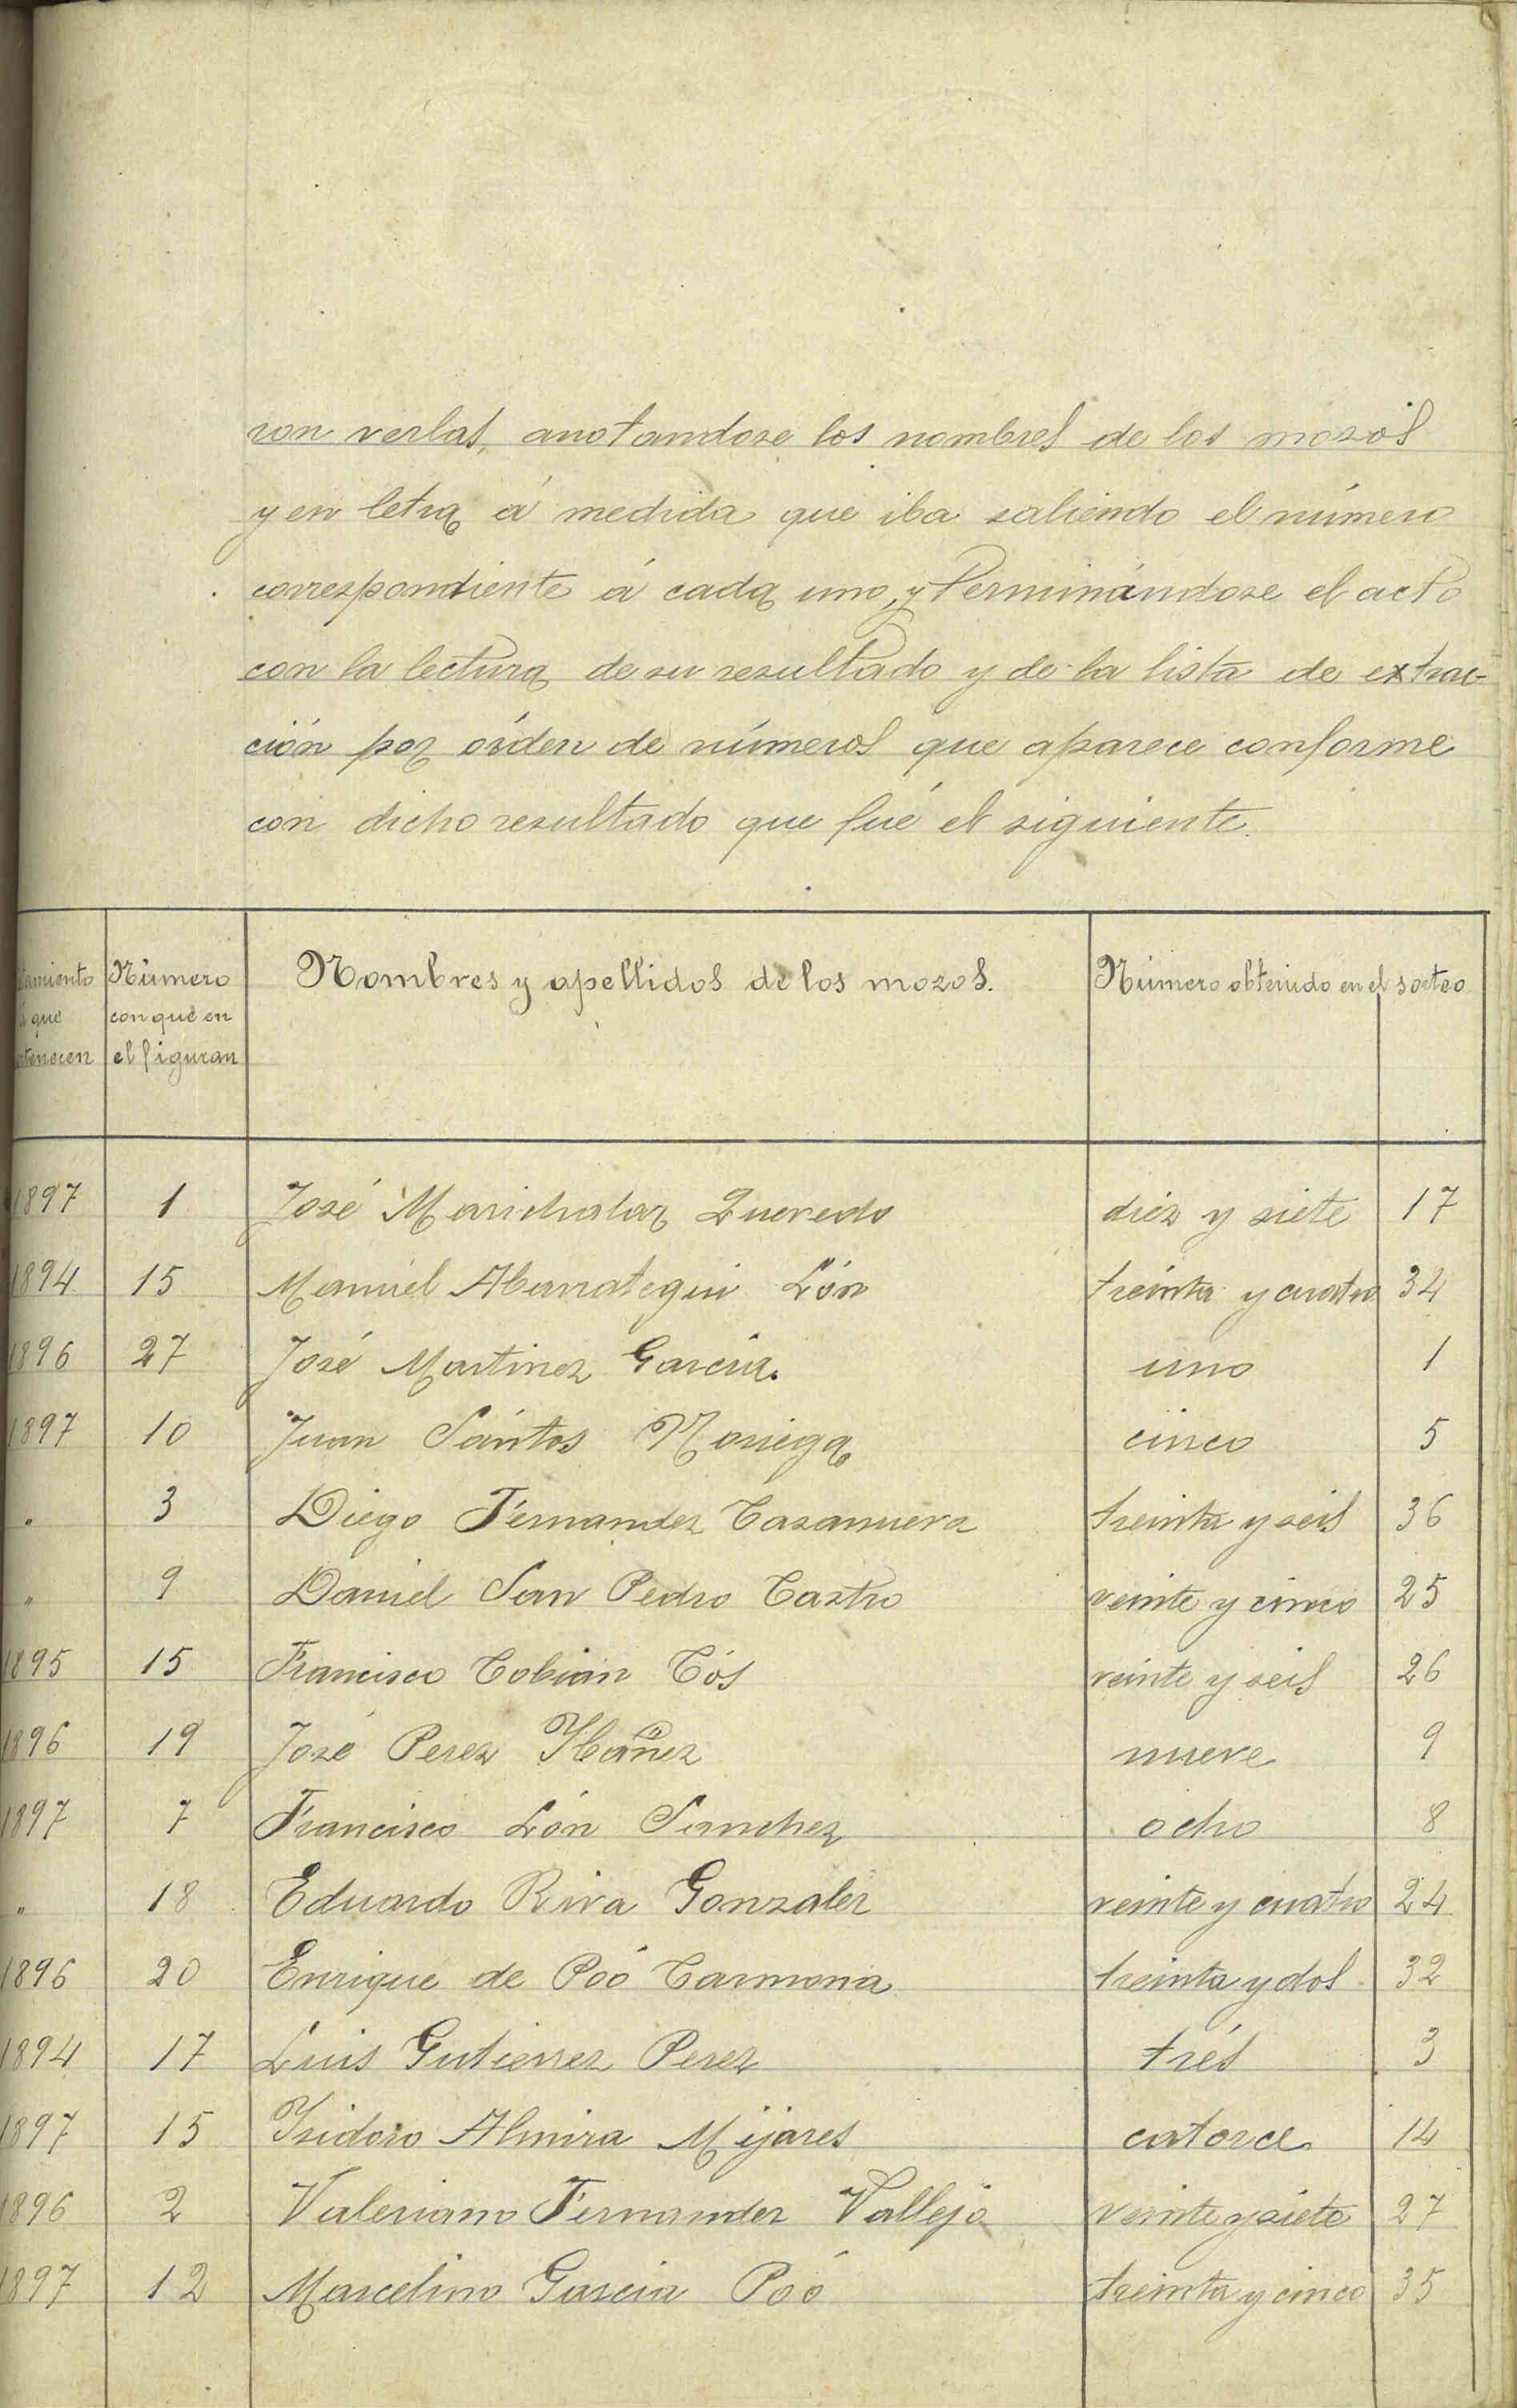 ron verlas, anotandose los nombres de los mozos
y en letra á medida que iba saliendo el número
correspondiente á cada uno, y terminándose el acto
con la lectura de su resultado y de la lista de extrac-
ción por órden de números que aparece conforme
con dicho resultado que fué el siguiente.
tamiento Número Nombres y apellidos de los mozos. Número obtenido en el sorteo
á que con que en
rtenecen el figuran
1897 1 José Marichalar Quevedo diez y siete 17
1894 15 Manuel Abarrategui Lón treinta y cuatro 34
1896 27 José Martinez García. uno 1
1897 10 Juan Sántos Noriega cinco 5
" 3 Diego Fernandez Casanueva treinta y seis 36
" 9 Daniel San Pedro Castro veinte y cinco 25
1895 15 Francisco Cobián Cós veinte y seis 26
1896 19 José Perez Ybañez nueve 9
1897 7 Francisco Lón Sanchez ocho 8
" 18 Eduardo Riva Gonzalez veinte y cuatro 24
1896 20 Enrique de Poó Carmona treinta y dos 32
1894 17 Luis Gutierrez Perez trés 3
1897 15 Ysidoro Almira Mijares catorce 14
1896 2 Valeriano Fernandez Vallejo veinte y siete 27
1897 12 Marcelino Garcia Poó treinta y cinco 35